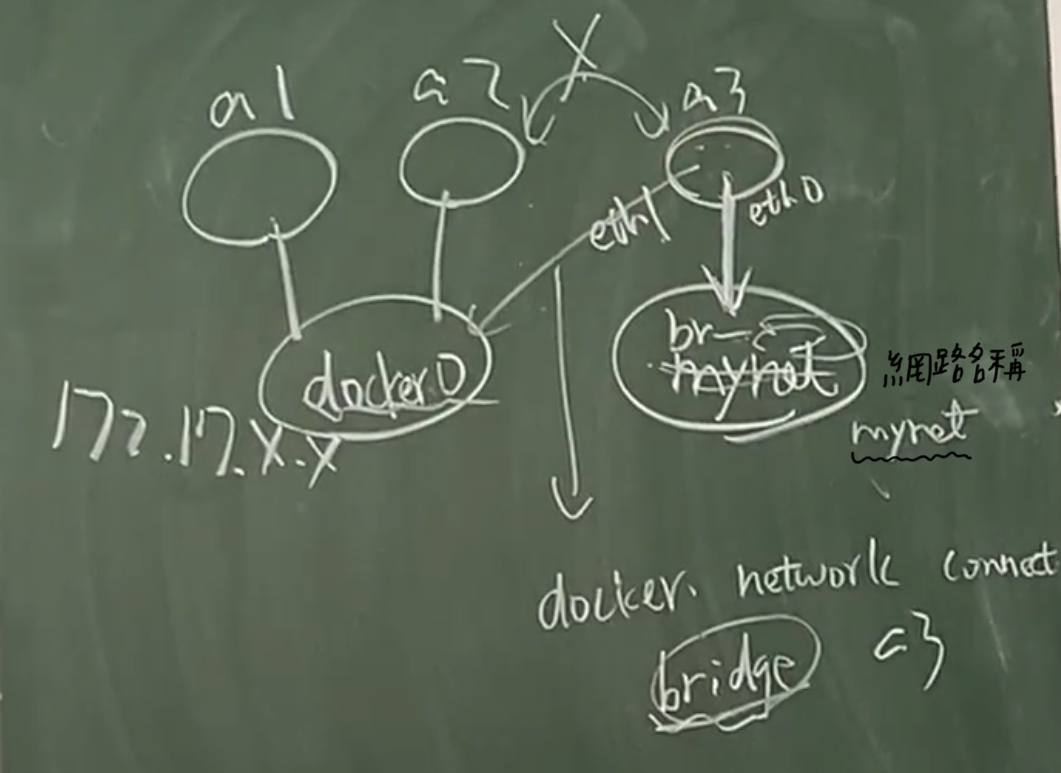 a1
a2
X
a3
eth1
eth0
docker0
br-
mynet
網路名稱
mynet
172.17.X.X
docker network connect
bridge a3